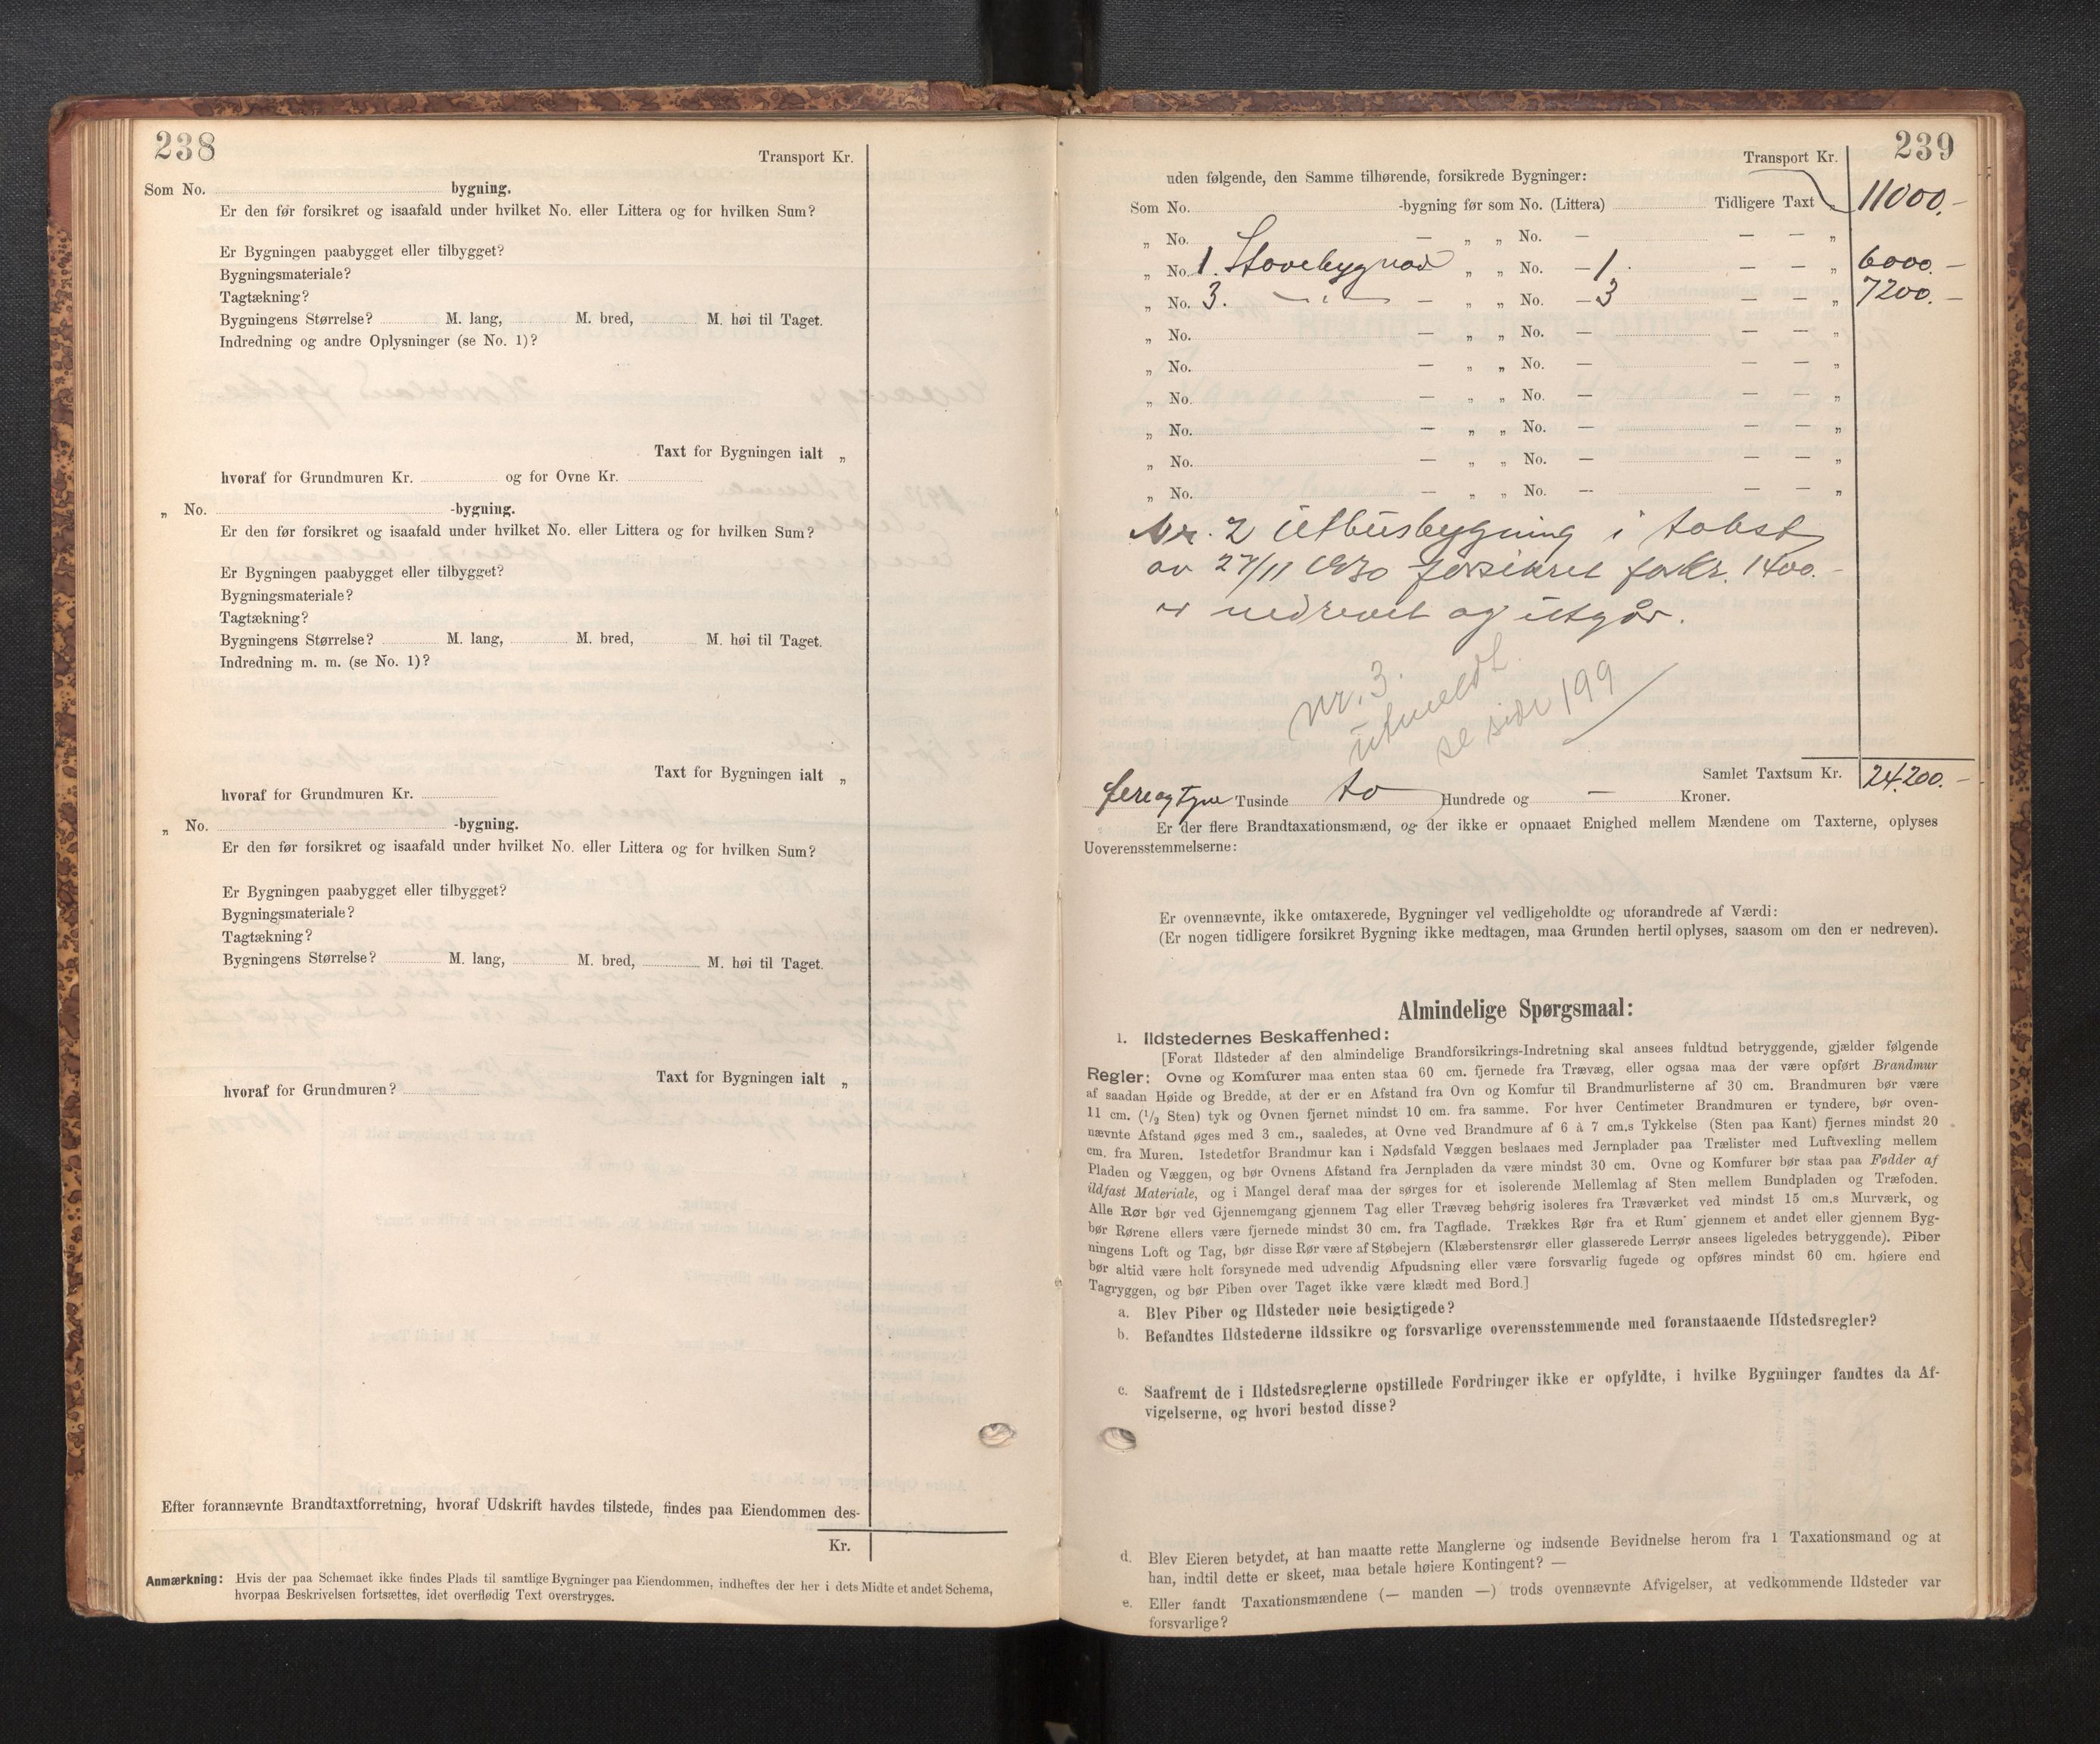 238
Transport Kr.
Som No. bygning.
Er den før forsikret og isaafald under hvilket No. eller Littera og for hvilken Sum?
Er Bygningen paabygget eller tilbygget?
Bygningsmateriale?
Tagtækning?
Bygningens Størrelse? M. lang, M. bred, M. høi til Taget.
Indredning og andre Oplysninger (se No. 1)?
Taxt for Bygningen ialt „
hvoraf for Grundmuren Kr. og for Ovne Kr.
„ No. -bygning.
Er den før forsikret og isaafald under hvilket No. eller Littera og for hvilken Sum?
Er Bygningen paabygget eller tilbygget?
Bygningsmateriale?
Tagtækning?
Bygningens Størrelse? M. lang, M. bred, M. høi til Taget.
Indredning m. m. (se No. 1)?
Taxt for Bygningen ialt „
hvoraf for Grundmuren Kr.
„ No. -bygning.
Er den før forsikret og isaafald under hvilket No. eller Littera og for hvilken Sum?
Er Bygningen paabygget eller tilbygget?
Bygningsmateriale?
Tagtækning?
Bygningens Størrelse? M. lang, M. bred, M. høi til Taget.
Taxt for Bygningen ialt „
hvoraf for Grundmuren?
Efter forannævnte Brandtaxtforretning, hvoraf Udskrift havdes tilstede, findes paa Eiendommen des-
Kr.
Anmærkning: Hvis der paa Schemaet ikke findes Plads til samtlige Bygninger paa Eiendommen, indheftes der her i dets Midte et andet Schema,
hvorpaa Beskrivelsen fortsættes, idet overflødig Text overstryges.
239
Transport Kr.
uden følgende, den Samme tilhørende, forsikrede Bygninger:
Som No. -bygning før som No. (Littera) Tidligere Taxt „ 11000.-
„ No. — „ „ No. — — — „
„ No. 1. Stovebygnad „ „ No. — 1. — — „ 6000.-
„ No. 3. — „ — — „ „ No. — 3 — — „ 7200.-
„ No. — „ „ No. — — — „
„ No. — „ „ No. — — — „
„ No. — „ „ No. — — — „
„ No. — „ „ No. — — — „
„ No. — „ „ No. — — — „
„ No. — „ „ No. — — — „
Nr. 2 Uthusbygning i takst
av 27/11 1930 forsikret for kr. 1400.-
er nedrevet og utgår.
nr. 3.
utmeldt
se side 199
Samlet Taxtsum Kr. 24.200.-
fireogtyve Tusinde to Hundrede og — Kroner.
Er der flere Brandtaxationsmænd, og der ikke er opnaaet Enighed mellem Mændene om Taxterne, oplyses
Uoverensstemmelserne:
Er ovennævnte, ikke omtaxerede, Bygninger vel vedligeholdte og uforandrede af Værdi:
(Er nogen tidligere forsikret Bygning ikke medtagen, maa Grunden hertil oplyses, saasom om den er nedreven).
Almindelige Spørgsmaal:
1. Ildstedernes Beskaffenhed:
[Forat Ildsteder af den almindelige Brandforsikrings-Indretning skal ansees fuldtud betryggende, gjælder følgende
Regler: Ovne og Komfurer maa enten staa 60 cm. fjernede fra Trævæg, eller ogsaa maa der være opført Brandmur
af saadan Høide og Bredde, at der er en Afstand fra Ovn og Komfur til Brandmurlisterne af 30 cm. Brandmuren bør være
11 cm. (1/2 Sten) tyk og Ovnen fjernet mindst 10 cm. fra samme. For hver Centimeter Brandmuren er tyndere, bør oven-
nævnte Afstand øges med 3 cm., saaledes, at Ovne ved Brandmure af 6 à 7 cm.s Tykkelse (Sten paa Kant) fjernes mindst 20
cm. fra Muren. Istedetfor Brandmur kan i Nødsfald Væggen beslaaes med Jernplader paa Trælister med Luftvexling mellem
Pladen og Væggen, og bør Ovnens Afstand fra Jernpladen da være mindst 30 cm. Ovne og Komfurer bør staa paa Fødder af
ildfast Materiale, og i Mangel deraf maa der sørges for et isolerende Mellemlag af Sten mellem Bundpladen og Træfoden.
Alle Rør bør ved Gjennemgang gjennem Tag eller Trævæg behørig isoleres fra Træværket ved mindst 15 cm.s Murværk, og
bør Rørene ellers være fjernede mindst 30 cm. fra Tagflade. Trækkes Rør fra et Rum gjennem et andet eller gjennem Byg-
ningens Loft og Tag, bør disse Rør være af Støbejern (Klæberstensrør eller glasserede Lerrør ansees ligeledes betryggende). Piber
bør altid være helt forsynede med udvendig Afpudsning eller være forsvarlig fugede og opføres mindst 60 cm. høiere end
Tagryggen, og bør Piben over Taget ikke være klædt med Bord.]
a. Blev Piber og Ildsteder nøie besigtigede?
b. Befandtes Ildstederne ildssikre og forsvarlige overensstemmende med foranstaaende Ildstedsregler?
c. Saafremt de i Ildstedsreglerne opstillede Fordringer ikke er opfyldte, i hvilke Bygninger fandtes da Af-
vigelserne, og hvori bestod disse?
d. Blev Eieren betydet, at han maatte rette Manglerne og indsende Bevidnelse herom fra 1 Taxationsmand og at
han, indtil dette er skeet, maa betale høiere Kontingent? —
e. Eller fandt Taxationsmændene (— manden —) trods ovennævnte Afvigelser, at vedkommende Ildsteder var
forsvarlige?